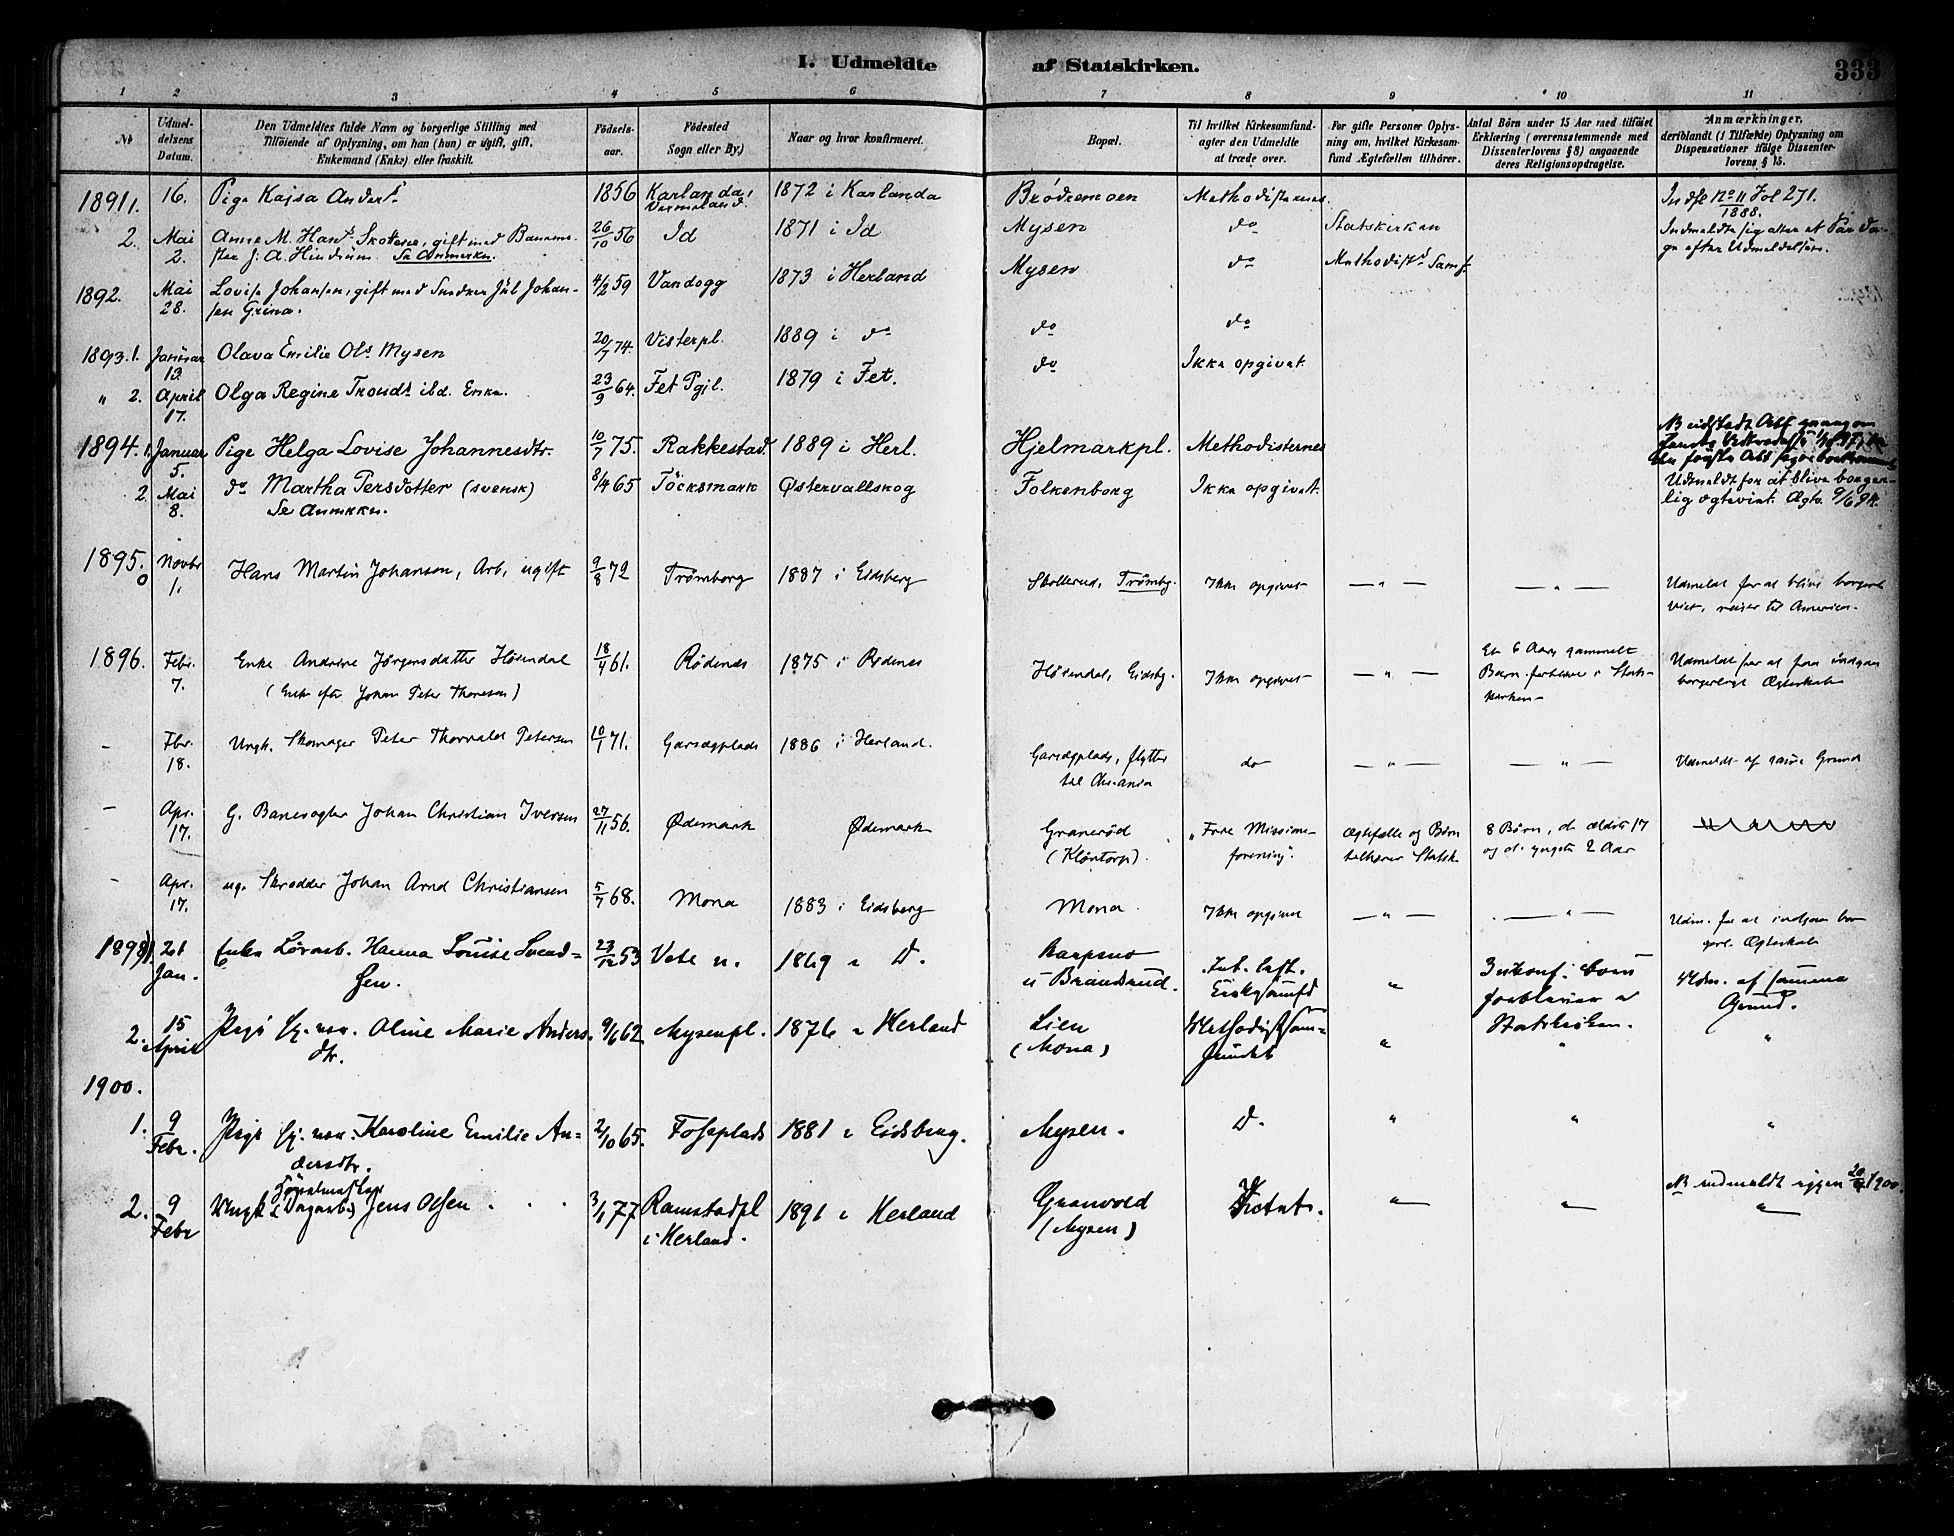 I. Udmeldte af Statskirken. 333
1 2 3 4 5 6 7 8 9 10 11
№ Udmeldelsens Datum. Den Udmeldtes fulde Navn og borgerlige Stilling med Tilføiende af Oplysning, om han (hun) er ugift, gift, Enkemand (Enke) eller fraskilt. Födselsaar. Födested Sogn eller By.) Naar og hvor konfirmeret. Bopæl. Til hvilket Kirkesamfund agter den Udmeldte at træde over. For gifte Personer Oplysning om, hvilket Kirkesamfund Ægtefællen tilhører. Antal Börn under 15 Aar med tilföiet Erklæring (overensstemmende med Dissenterlovens § 8) angaaende deres Religionsopdragelse. Anmærkninger, deriblandt (i Tilfælde) Oplysning om Dispensationer ifölge Dissenterlovens § 15.
1891 1. 16. Pige Kajsa Andersd. 1856 Karlanda, Vermeland. 1872 i Karlanda Brödremoen Methodisternes Indft No 11 Fol 271. 1888.
2. Mai 2. Anne M. Hansd. Skotene, gift med Banemester J. A. Hindrum. Se Anmærkn. 26/10 56 Id 1871 i Id Mysen do Statskirken Indmeldte sig atter et Par Dage efter Udmeldelsen.
1892. Mai 28. Lovise Johansen, gift med Snedker Jul Johansen Grina. 4/2 59 Vandogg 1873 i Herland Mysen do Methodist Samf.
1893. 1. Januar 13. Olava Emilie Olsd. Mysen 20/7 74. Visterpl. 1889 i do do do
" 2. April 17. Olga Regine Trondsd. ibd. Enke. 23/9 64. Fet Pgjl. 1879 i Fet. do Ikke opgivet.
1894. 1. Januar 5. Pige Helga Lovise Johannesdtr. 10/7 75. Rakkestad. 1889 i Herl. Hjelmarkpl. Methodisternes
2 Mai 8. do Martha Persdotter (svensk) Se Anmerkn. 8/4 65 Töcksmark Østervallskog Folkenborg Ikke opgivet. Udmeldt for at blive borgerlig ægteviet. Ægtv. 9/6 94.
1895. Novbr 1. Hans Martin Johansen, Arb, ugift 9/8 72 Trømborg 1887 i Eidsberg Skollerud, Trømbg. Ikke opgivet — " — — " — Udmeldt for at blive borgerl. viet, reiser til Amerika.
1896. Febr. 7. Enke Andrine Jørgensdatter Høiendal (Enke eftr Johan Peter Thoresen) 18/4 61. Rødenes 1875 i Rødenes Høiendal, Eidsbg. Ikke opgivet — " — Et 6 Aars gammelt Barn forbliver i Statskirken Udmeldt for at faa indgaa borgerligt Ægteskab
- Fbr. 18. Ungk. Skomager Peter Thorvald Petersen 10/1 71. Garsegplads 1886 i Herland. Garsegplads, flytter til Chr.ania do — " — — " — Udmeldt af samme Grund
- Apr. 17. G. Banevogter Johan Christian Iversen 27/11 56. Ødemark Ødemark Granerød (Kløntorp). "Frie Missionsforening". Ægtefælle og Børn tilhører Statsk 8 Børn, d. ældste 17 og d. yngste 2 Aar
- Apr. 17. ug. Skrædder Johan Arnd Christiansen 5/7 68. Mona 1883 i Eidsberg Mona Ikke opgivet — " — — " — Udm. for at indgaa borgerl. Ægteskab
1898 1. 21 Jan. Enke Hanna Louise Svendsen. 23/12 53 1869 i D. " 3 ukonf. børn forbliver i Statskirken. Udm. af samme Grund.
2. 15 April Pige Aline Marie Andersdtr. 9/6 62. Mysenpl. 1876 i Herland Lien (Mona) Methodistsamfundet " " "
1900.
1. 9 Febr. Pige Karoline Emilie Andersdtr. 2/10 65. Fossplads 1881 i Eidsberg. Mysen. D. " " "
2. 9 Febr Ungk (Dagarb.) Jens Olsen 3/1 77 Ramstadpl i Herland. 1891 i Herland Granvold (Mysen) " " NB indmeldt igjen 1900. "